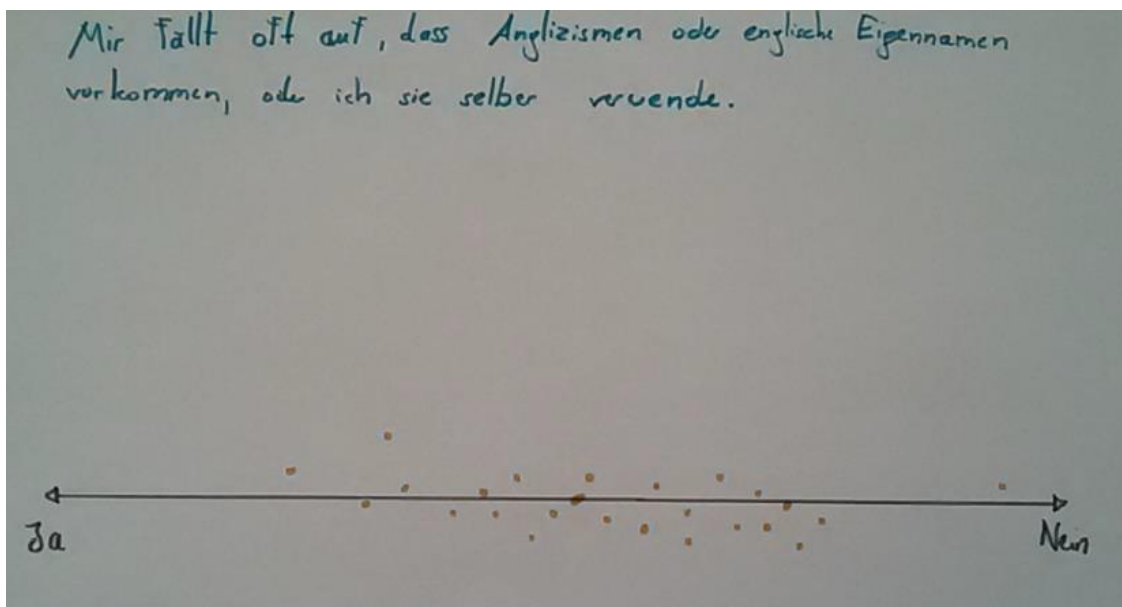 Mir fällt oft auf, dass Anglizismen oder englische Eigennamen
vorkommen, oder ich sie selber verwende.
Ja
Nein